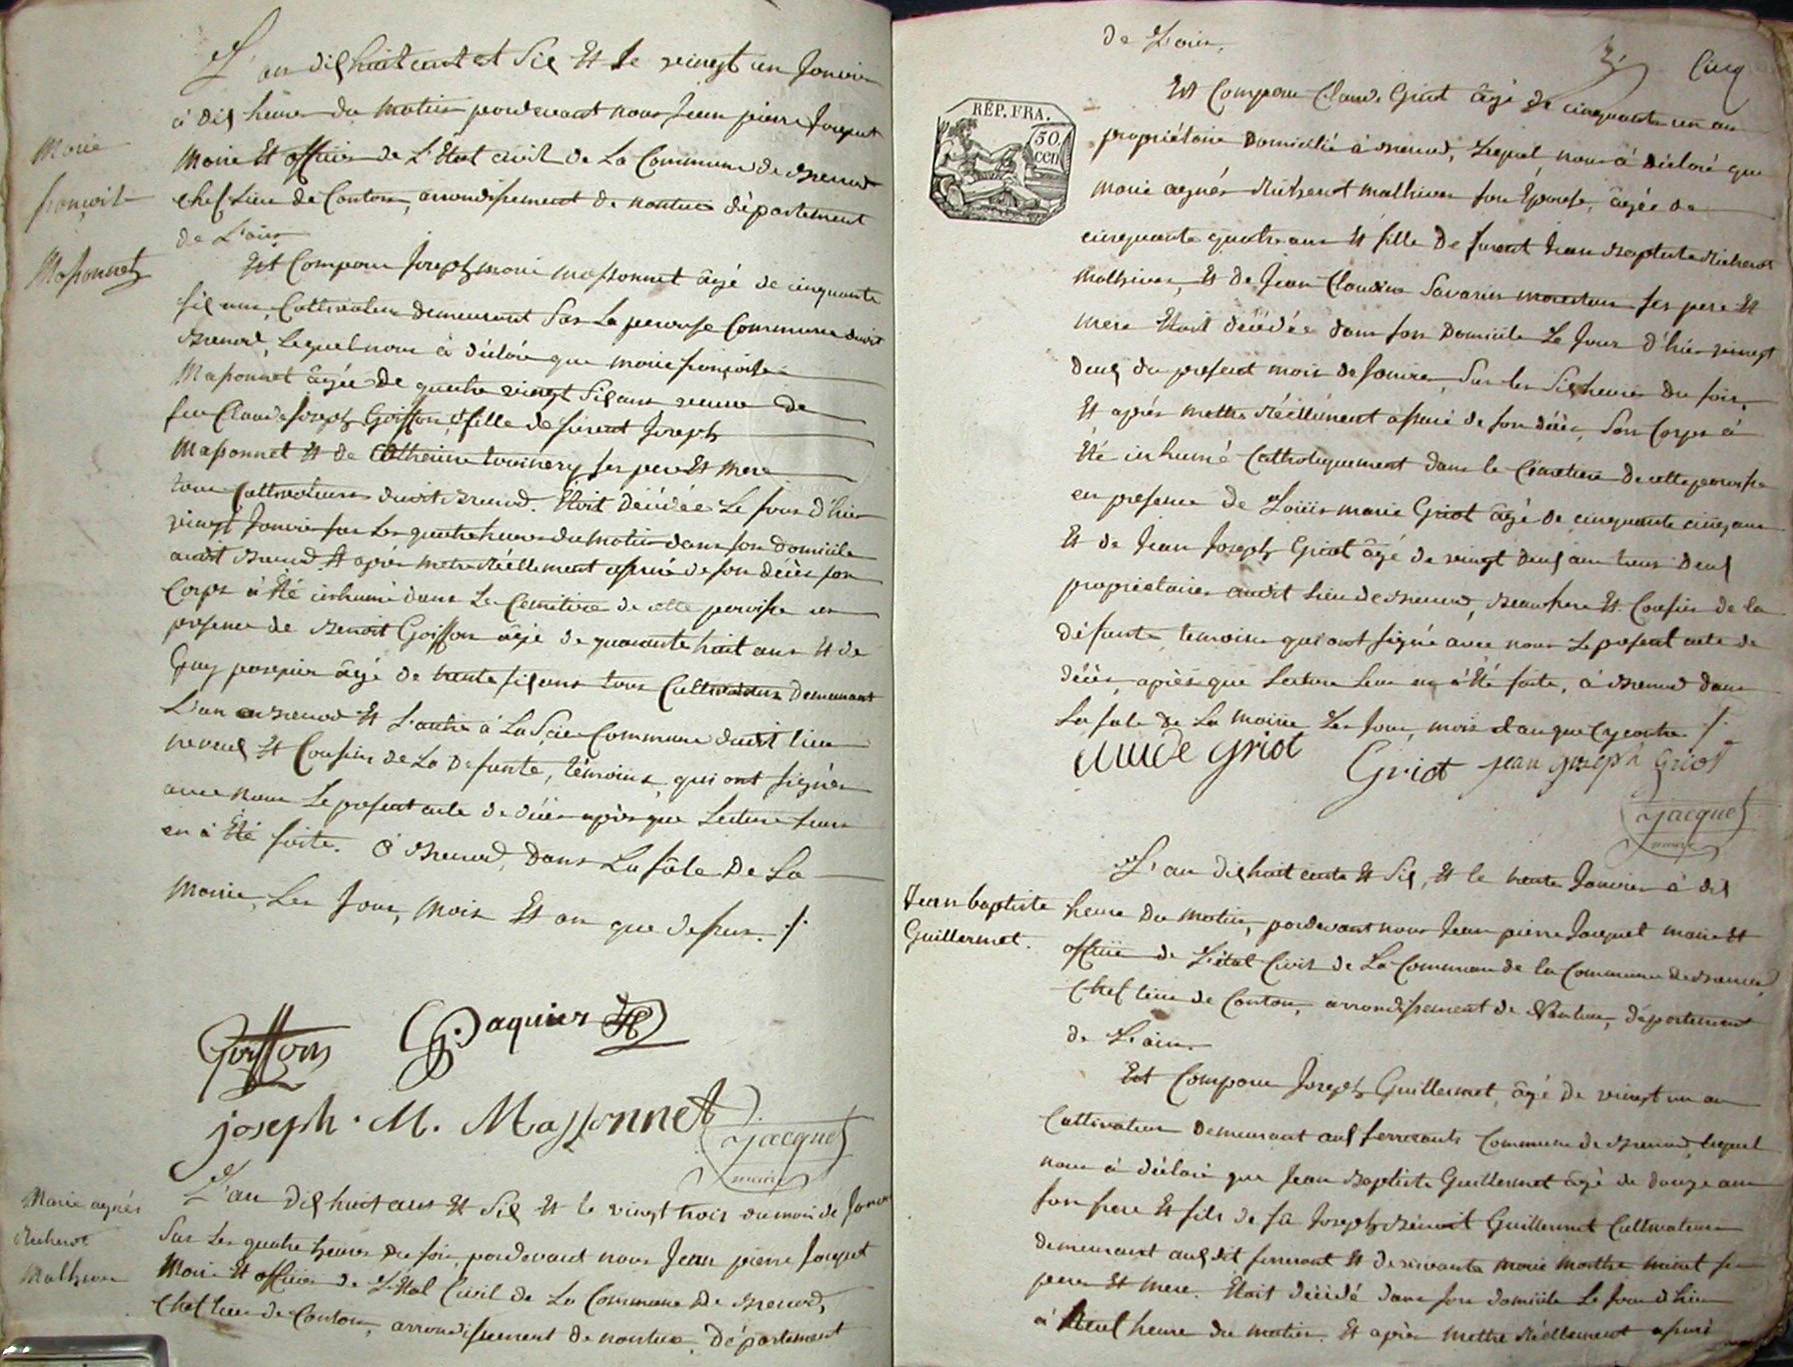 L'an dix huit cent et six Et le vingt un Janvier
à dix heures du matin pardevant nous Jean pierre Jacquet
Marie
Maire Et officier de L'Etat civil de La Commune de Brenod
françoise
chef Lieu de Canton, arrondissement de nantua département
de L'ain
Massonnet
Est Comparu Joseph marie massonnet âgé de cinquante
six ans, Cultivateur demeurant Sur La perouse Commune dudit
Brenod, Lequel nous à déclaré que marie françoise
Massonnet âgée de quatre vingt Six ans veuve de
feu Claude Joseph Goiffon, et fille de furent Joseph
Massonnet Et de Catherine ses pere Et mere
tous Cultivateurs dudit Brenod. Etoit Décédée Le Jour d'hier
vingt Janvier sur Les quatre heures du matin dans son domicile
audit Brenod Et après metre Réellement assuré de son décès son
Corps à Eté inhumé dans Le Cemetiere de cette paroisse en
presence de Benoit Goiffon âgé de quarante huit ans Et de
Guy pasquier âgé de trente six ans tous Cultivateurs Demeurant
L'un à Brenod Et L'autre à La Scie Commune dudit lieu
neveux Et Cousin de La Defunte, témoins qui ont signés
avec nous Le present acte de décès après que Lecture Leur
en à Eté faite. à Brenod, Dans La Sale De La
Mairie, Les Jour, Mois Et an que dessus. ./.
Goiffon
G. Paquier
joseph. M. Massonnet
Jacquet
maire
Marie agnés
L'an dix huit cens Et Six Et le vingt trois du mois de Janvier
Richerot
Sur Les quatre heures du soir pardevant nous Jean pierre Jacquet
Mathieu
Maire Et officier de L'Etat Civil de La Commune De Brenod,
Chef Lieu de Canton, arrondissement de nantua, Département
de L'ain.
Cinq
RÉP. FRA.
50
cen
Est Comparu Claude Griot âgé de cinquante un an
propriétaire Domicilié à Brenod, Lequel nous à déclaré que
marie agnés Richerot mathieu son Epouse, âgée de
cinquante quatre ans Et fille de furent Jean Baptiste Richerot
Mathieu, Et de Jean Claudine Savarin ses pere Et
mere Etoit décédée dans son Domicile Le Jour d'hier vingt
deux du present mois de Janvier, Sur les Six heures du soir,
Et après mettre Réellement assuré de son décès, Son Corps à
Eté inhumé Catholiquement dans le Cimetiere de cette paroisse
en presence de Loüis marie Griot âgé de cinquante cinq ans
Et de Jean Joseph Griot âgé de vingt deux ans tous Deux
propriétaires audit Lieu de Brenod, Beaufrere Et Cousin de la
défunte, temoins qui ont signé avec nous Le present acte de
décès, après que Lecture Leur en à Eté faite, à Brenod dans
La sale De La Mairie Les Jour, mois et an que Cy contre ./.
claude Griot
Griot
jean joseph Griot
Jacquet
maire
L'an dix huit cents Et Six, Et le trente Janvier à dix
Jean baptiste
heure du matin, pardevant nous Jean pierre Jacquet maire Et
Guillermet.
officier de L'état Civil de La Commune de la Commune de Brenod,
Chef Lieu de Canton, arrondissement de Nantua, département
de L'ain.
Est Comparu Joseph Guillermet, âgé de vingt un an
Cultivateur Demeurant aux ferrerants Commune de Brenod, Lequel
nous à déclaré que Jean Baptiste Guillermet âgé de douze ans
son frere Et fils de fû Joseph Bénoit Guillermet Cultivateur
demeurant auxdit ferrerant Et de vivante marie marthe minet ses
pere Et mere. Etoit décédé dans son domicile Le Jour d'hier
à Neuf heure du matin. Et après mettre Réellement assuré